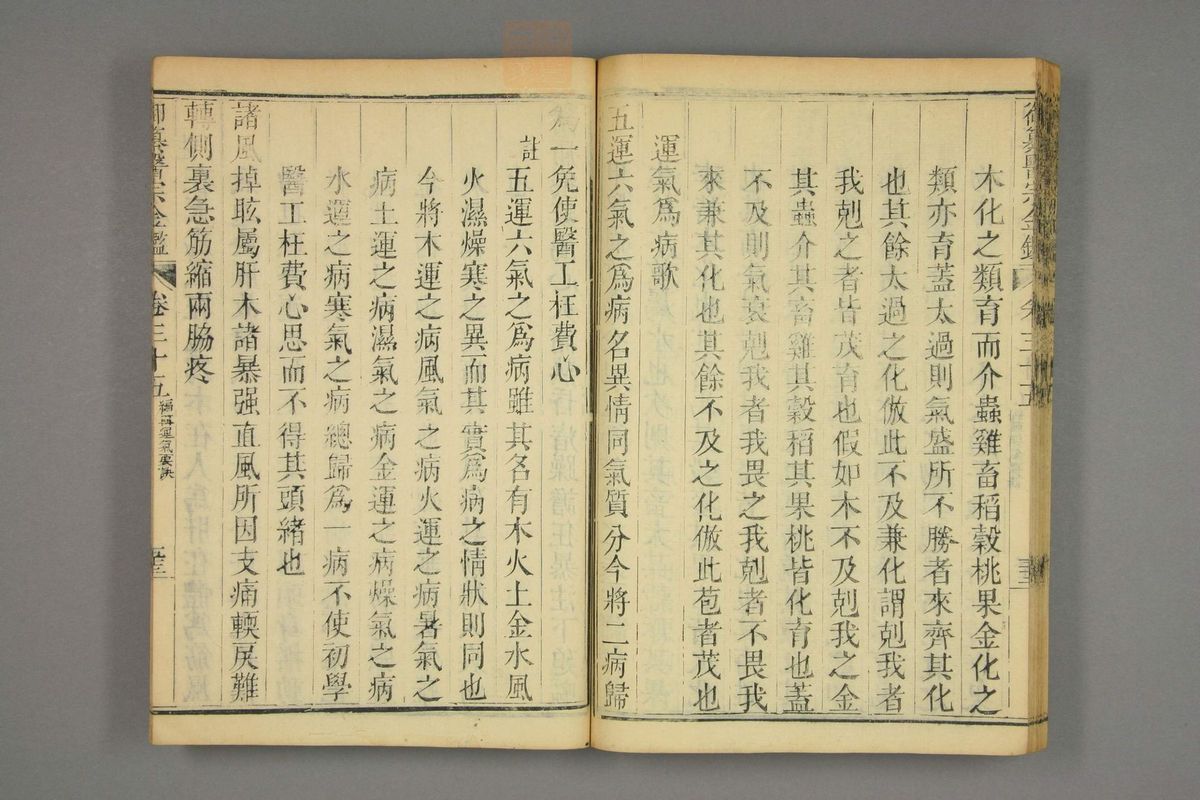 御纂醫宗金鑑 卷三十五
木化之類育而介蟲雞畜稻穀桃果金化之
類亦育蓋太過則氣盛所不勝者來齊其化
也其餘太過之化倣此不及兼化謂剋我者
我剋之者皆茂育也假如木不及剋我之金
其蟲介其畜雞其穀稻其果桃皆化育也蓋
不及則氣衰剋我者我畏之我剋者不畏我
來兼其化也其餘不及之化倣此苞者茂也
運氣爲病歌
五運六氣之爲病名異情同氣質分今將二病歸
為一免使醫工枉費心
註
五運六氣之爲病雖其名有木火土金水風
火濕燥寒之異而其實爲病之情狀則同也
今將木運之病風氣之病火運之病暑氣之
病土運之病濕氣之病金運之病燥氣之病
水運之病寒氣之病總歸爲一病不使初學
醫工枉費心思而不得其頭緒也
諸風掉眩屬肝木諸暴强直風所因支痛軟戾難
轉側裏急筋縮兩脇疼
御纂醫宗金鑑 卷三十五 編輯運氣要訣